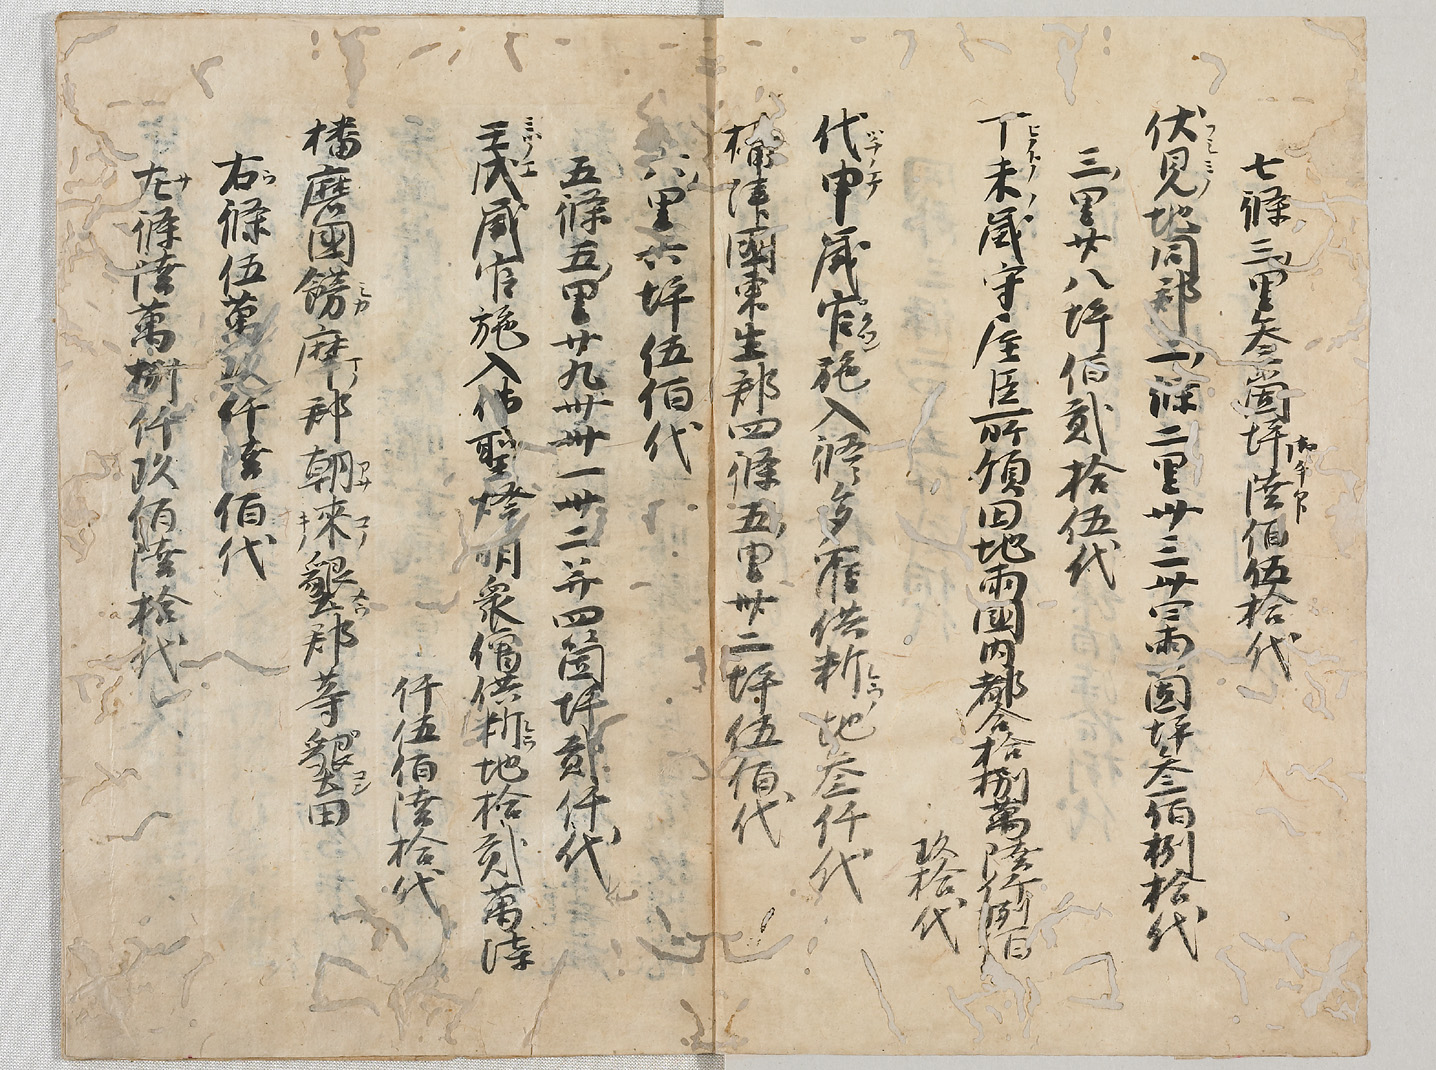 七條三里叄箇坪陸佰伍拾代
伏見地同郡一條二里卅三卅四兩箇坪叄佰捌拾代
三里廿八坪佰貳拾伍代
丁未歳守屋臣所領田地兩國内都合拾捌萬陸仟捌百
玖拾代
代申歳官施入修多羅供析地叄仟代
攝津國東生郡四條五里卅二坪伍佰代
六里六坪伍佰代
五條五里廿九卅卅一卅二并四箇坪貳仟代
壬戌歳官施入佛聖燈明衆僧供析地拾貳萬陸
仟伍佰陸拾代
播磨國餝摩郡朝來郡等墾田
右條伍萬玖仟陸佰代
左條陸萬捌仟玖佰陸拾代